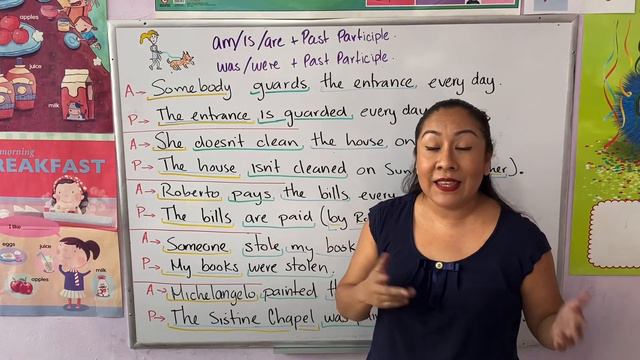 am/is/are + Past Participle.
was/were + Past Participle.
A→ Somebody guards the entrance every day.
P→ The entrance is guarded every day
A→ She doesn't clean the house on
P→ The house isn't cleaned on Sun her).
A→ Roberto pays the bills every
P→ The bills are paid (by Ro
A→ Someone stole my book
P→ My books were stolen.
A→ Michelangelo painted th
P→ The Sistine Chapel was pain
apples
juice
milk
morning
REAKFAST
I like
eggs
juice
apples
milk